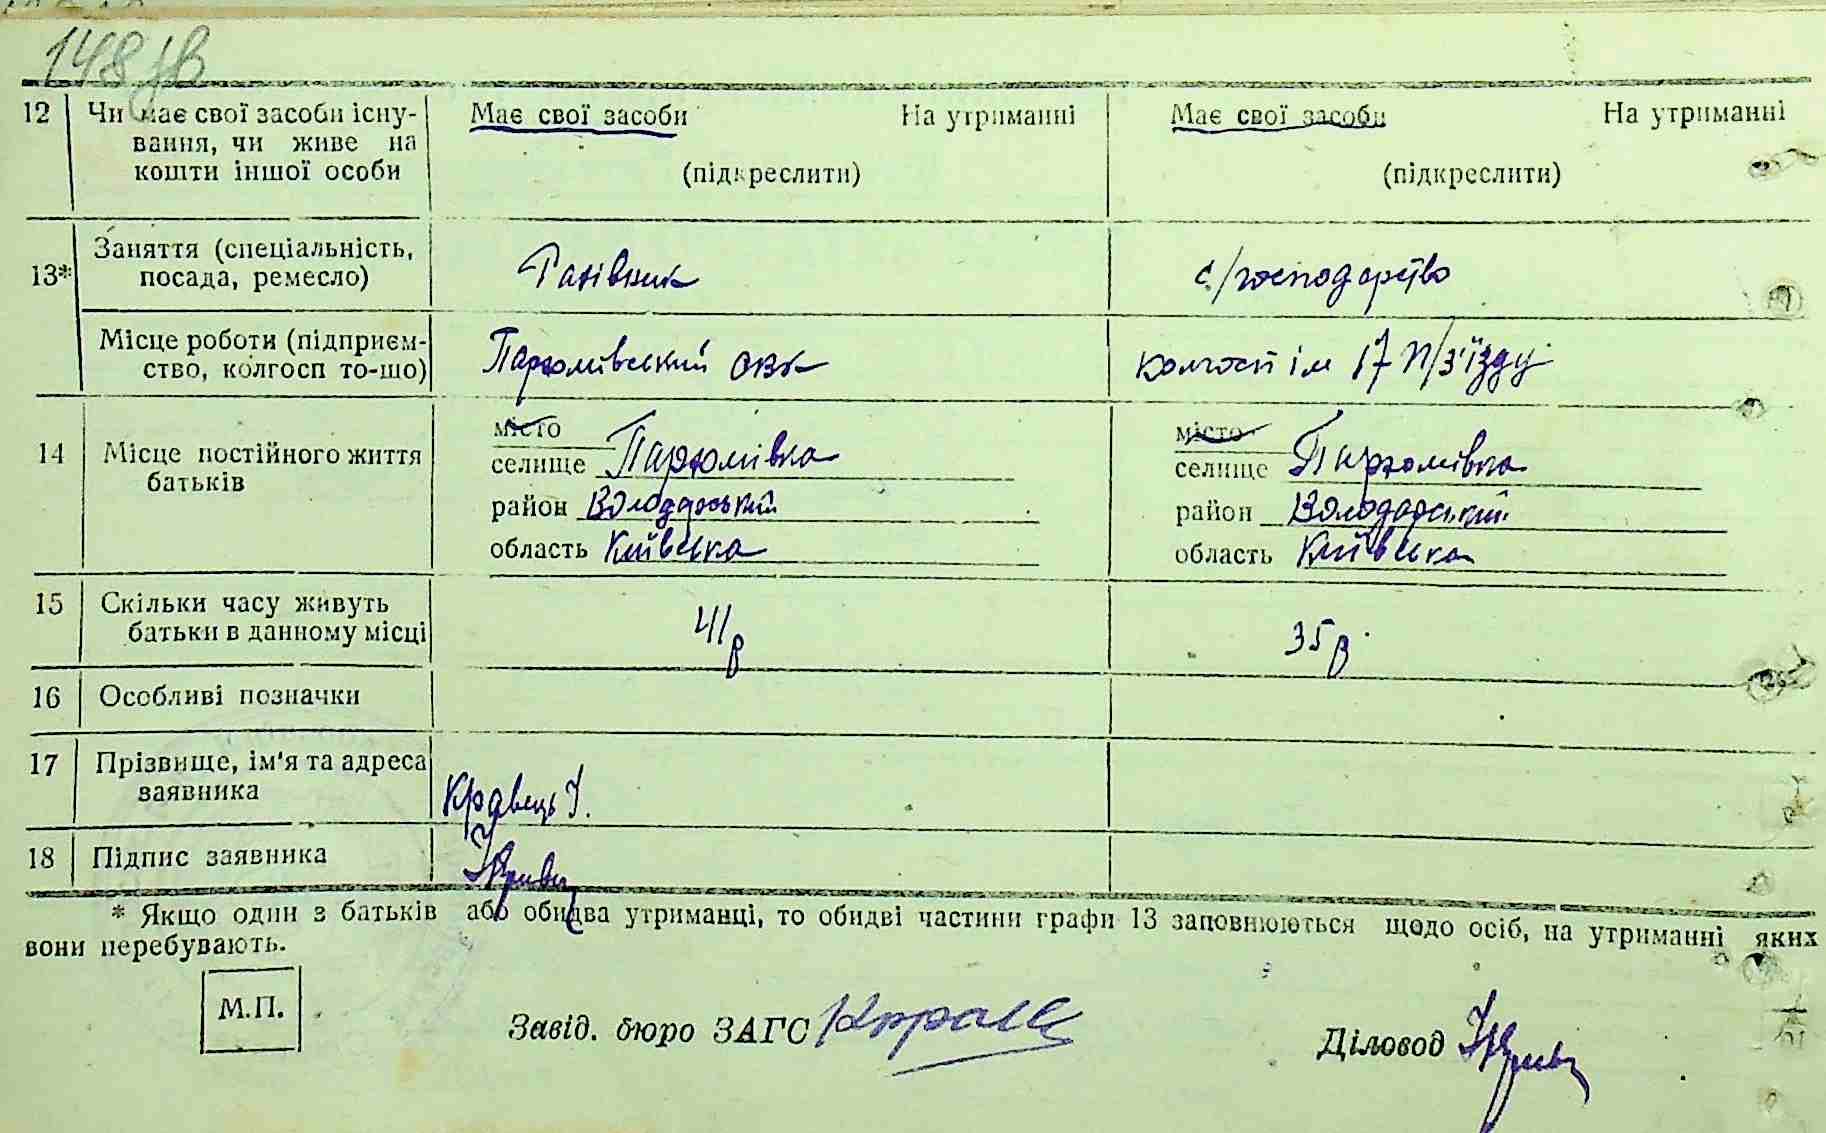 148 зв
12 Чи має свої засоби існу-
вання, чи живе на
кошти іншої особи
Має свої засоби На утриманні
(підкреслити)
Має свої засоби На утриманні
(підкреслити)
13* Заняття (спеціальність,
посада, ремесло)
с/господарство
Місце роботи (підприєм-
ство, колгосп то-що)
Пархомівський
колгосп ім 17 п/з'їзду
14 Місце постійного життя
батьків
місто
селище Пархомівка
район Володарський
область Київська
місто
селище Пархомівка
район Володарський
область Київська
15 Скільки часу живуть
батьки в данному місці
41 р
35 р.
16 Особливі позначки
17 Прізвище, ім'я та адреса
заявника
Кравець І.
18 Підпис заявника
* Якщо один з батьків або обидва утриманці, то обидві частини графи 13 заповнюються щодо осіб, на утриманні яких
вони перебувають.
М.П.
Завід. бюро ЗАГС
Діловод